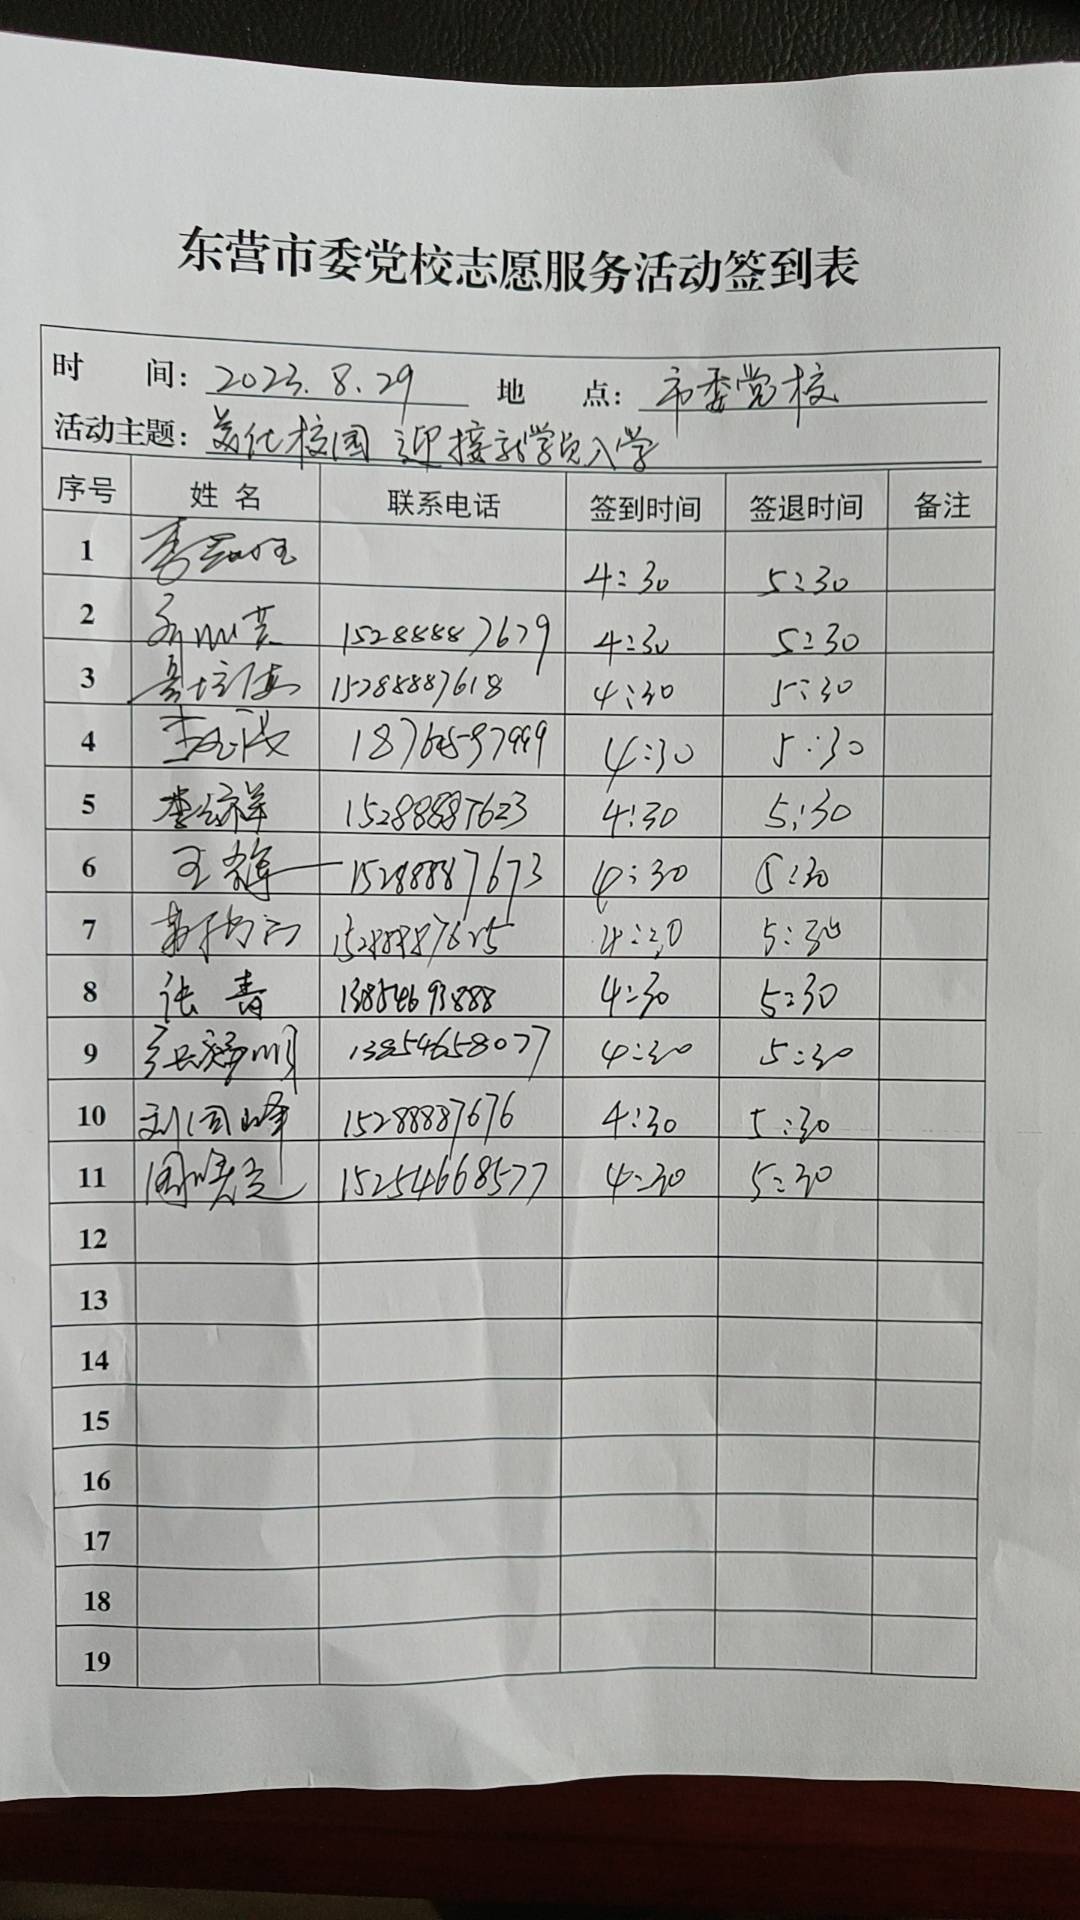 东营市委党校志愿服务活动签到表
时 间：2023.8.29 地 点：市委党校
活动主题：美化校园 迎接新学员入学
序号 姓名 联系电话 签到时间 签退时间 备注
1 4:30 5:30
2 15288887679 4:30 5:30
3 15288887618 4:30 5:30
4 4:30 5:30
5 15288887623 4:30 5:30
6 王辉 15288887673 4:30 5:30
7 15288887625 4:30 5:30
8 张青 13854693888 4:30 5:30
9 13854658077 4:30 5:30
10 刘国峰 15288887676 4:30 5:30
11 15254668577 4:30 5:30
12
13
14
15
16
17
18
19